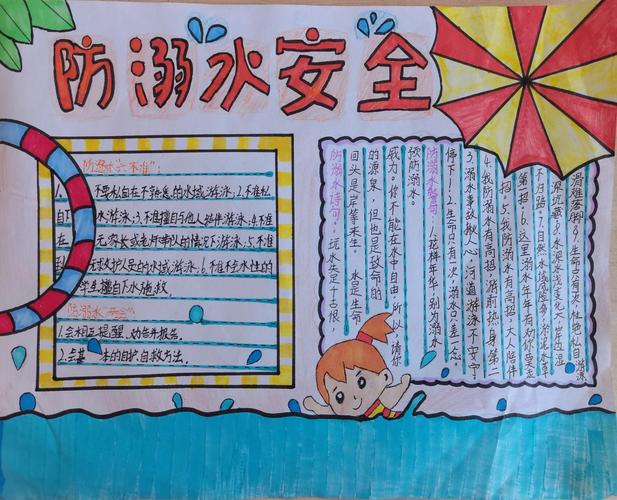 防溺水安全
防溺水"六不准":
1. 不要私自在不熟悉的水域游泳.2.不准私
自下水游泳.3.不准擅自与他人结伴游泳.4.不准
在无家长或老师带队的情况下游泳.5.不准
无救护人员的水域游泳.6.不准不会水性的
学生擅自下水施救.
防溺水 会":
1.会相互提醒、劝告并报告.
2.会基 本的自护、自救方法.
防溺水诗句:玩水失足千古恨,
回头是岸等来生. 水是生命
的源泉,但也是致命的
威力.你不能在水中自由,所以请你
预防溺水.
防溺水警句:1.花样年华,别为溺水
停下!2.生命只有一次,溺水只差一念.
3.溺水事故揪人心,河道游泳不安宁
4.我防溺水有高招,游前热身第二
招.5.我防溺水有高招,大人陪伴
第一招.6.这里溺水年年有劝你莫要走
不归路.7.自然水域险象多,淤泥水草
深坑藏.8.水深水浅变化大,岸边湿
滑难落脚.9.生命只有一次,杜绝私自游泳